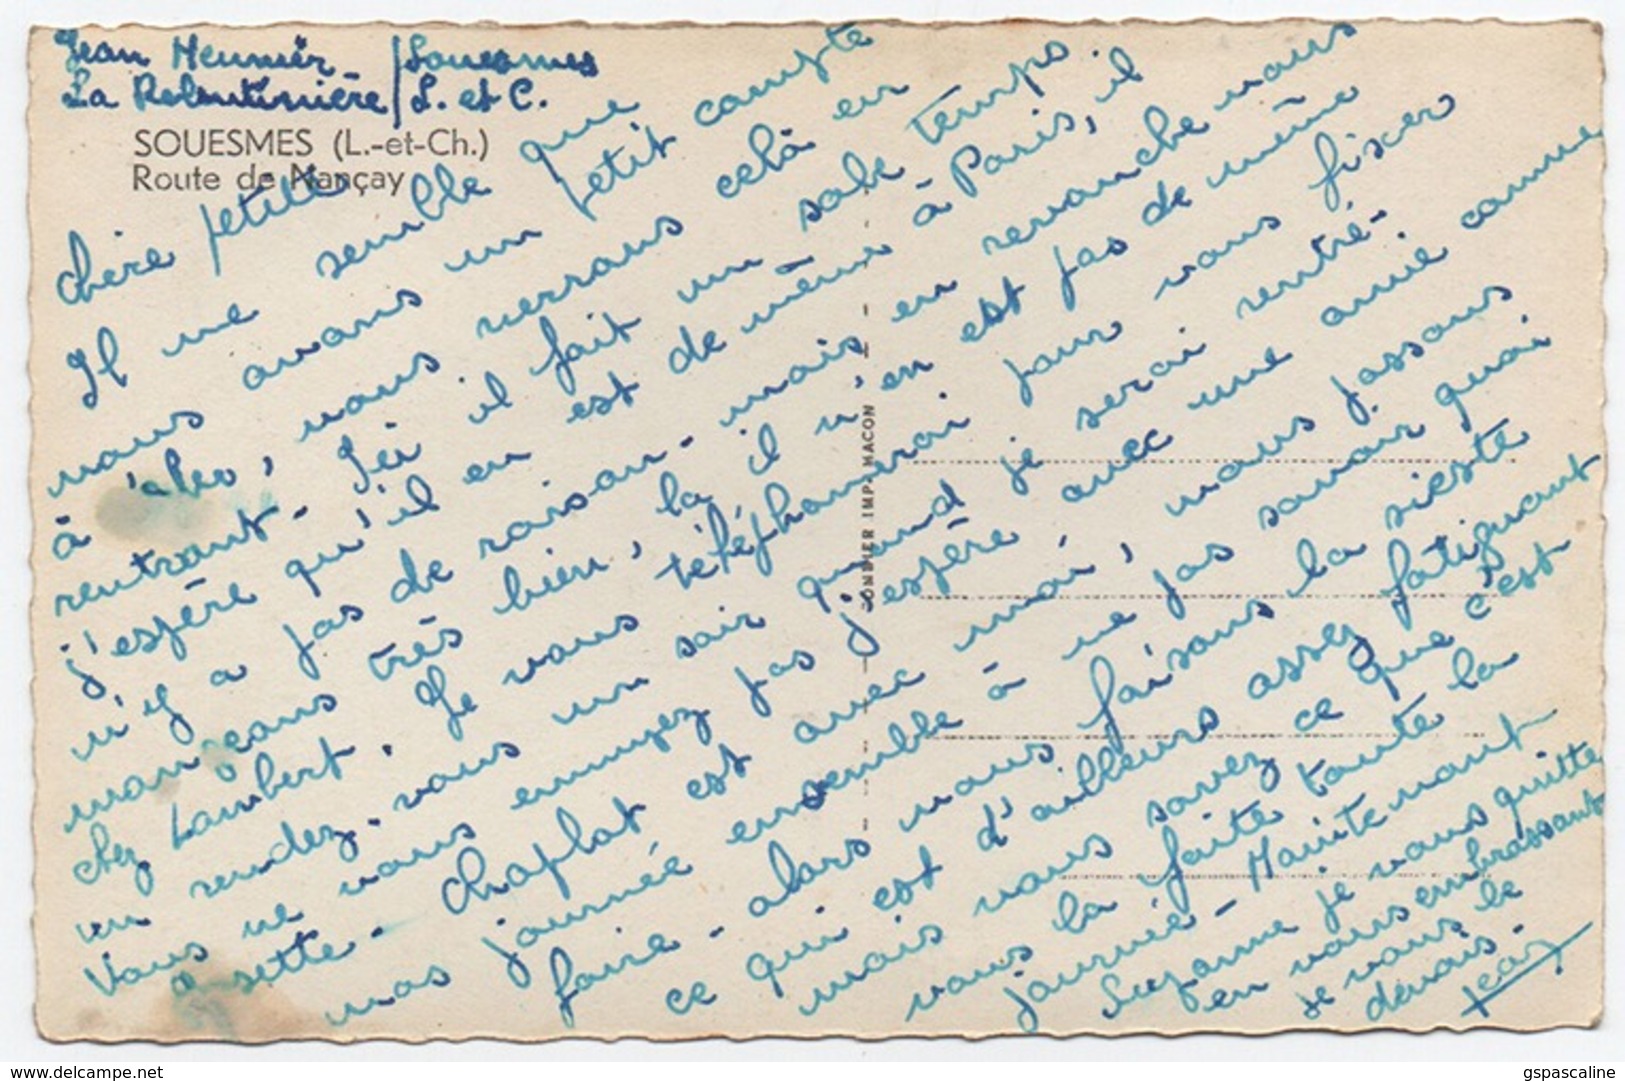 Jean Meunier / Souesmes
La / L. et C.
SOUESMES (L.-et-Ch.)
Route de Nançay
Chère petite
Il me semble que
nous avons un petit compte
à , nous verrons celà en
rentrant - Ici il fait un sale temps
j'espère qu'il en est de même à Paris, il
n'y a pas de raison - mais en revanche nous
mangeons très bien, la il n'en est pas de même
chez Lambert. Je vous téléphonerai pour vous fixer
un rendez-vous un soir quand je serai rentré -
Vous ne vous ennuyez pas j'espère avec une amie comme
sette - Chaplat est avec moi, nous passons
nos journée ensemble à ne pas savoir quoi
faire - alors nous faisons la sieste
ce qui est d'ailleurs assez fatiguant
mais vous savez ce que c'est
vous la faite toute la
journée - Maintenant
Suzanne je vous quitte
en vous embrassant
je vous le
devais -
Jean
COMBIER IMP. MACON
delcampe.net
gspascaline